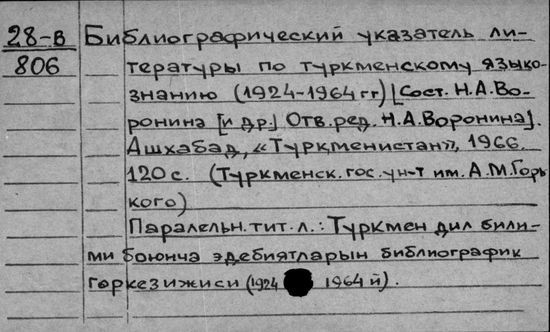 28-в Библиографический указатель ли-
806 тературы по туркменскому языко-
знанию (1924-1964гг) [Сост. Н.А.Во-
ронина [и др.] Отв. ред. Н.А.Воронина].
Ашхабад, «Туркменистан», 1966.
120 с. (Туркменск. гос. ун-т им. А.М.Горь
кого)
Паралельн. тит. л.: Түркмен дил били-
ми боюнча эдебиятларын библиографик
гөркезижиси (1924 1964 й).